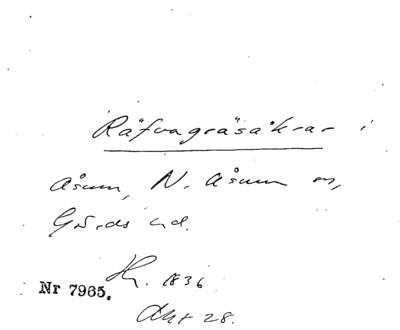 Räfvagräsåkrar i
Åsum, N. Åsum sn,
Gärds hd.
Hr. 1836
Nr 7965.
Akt 28.